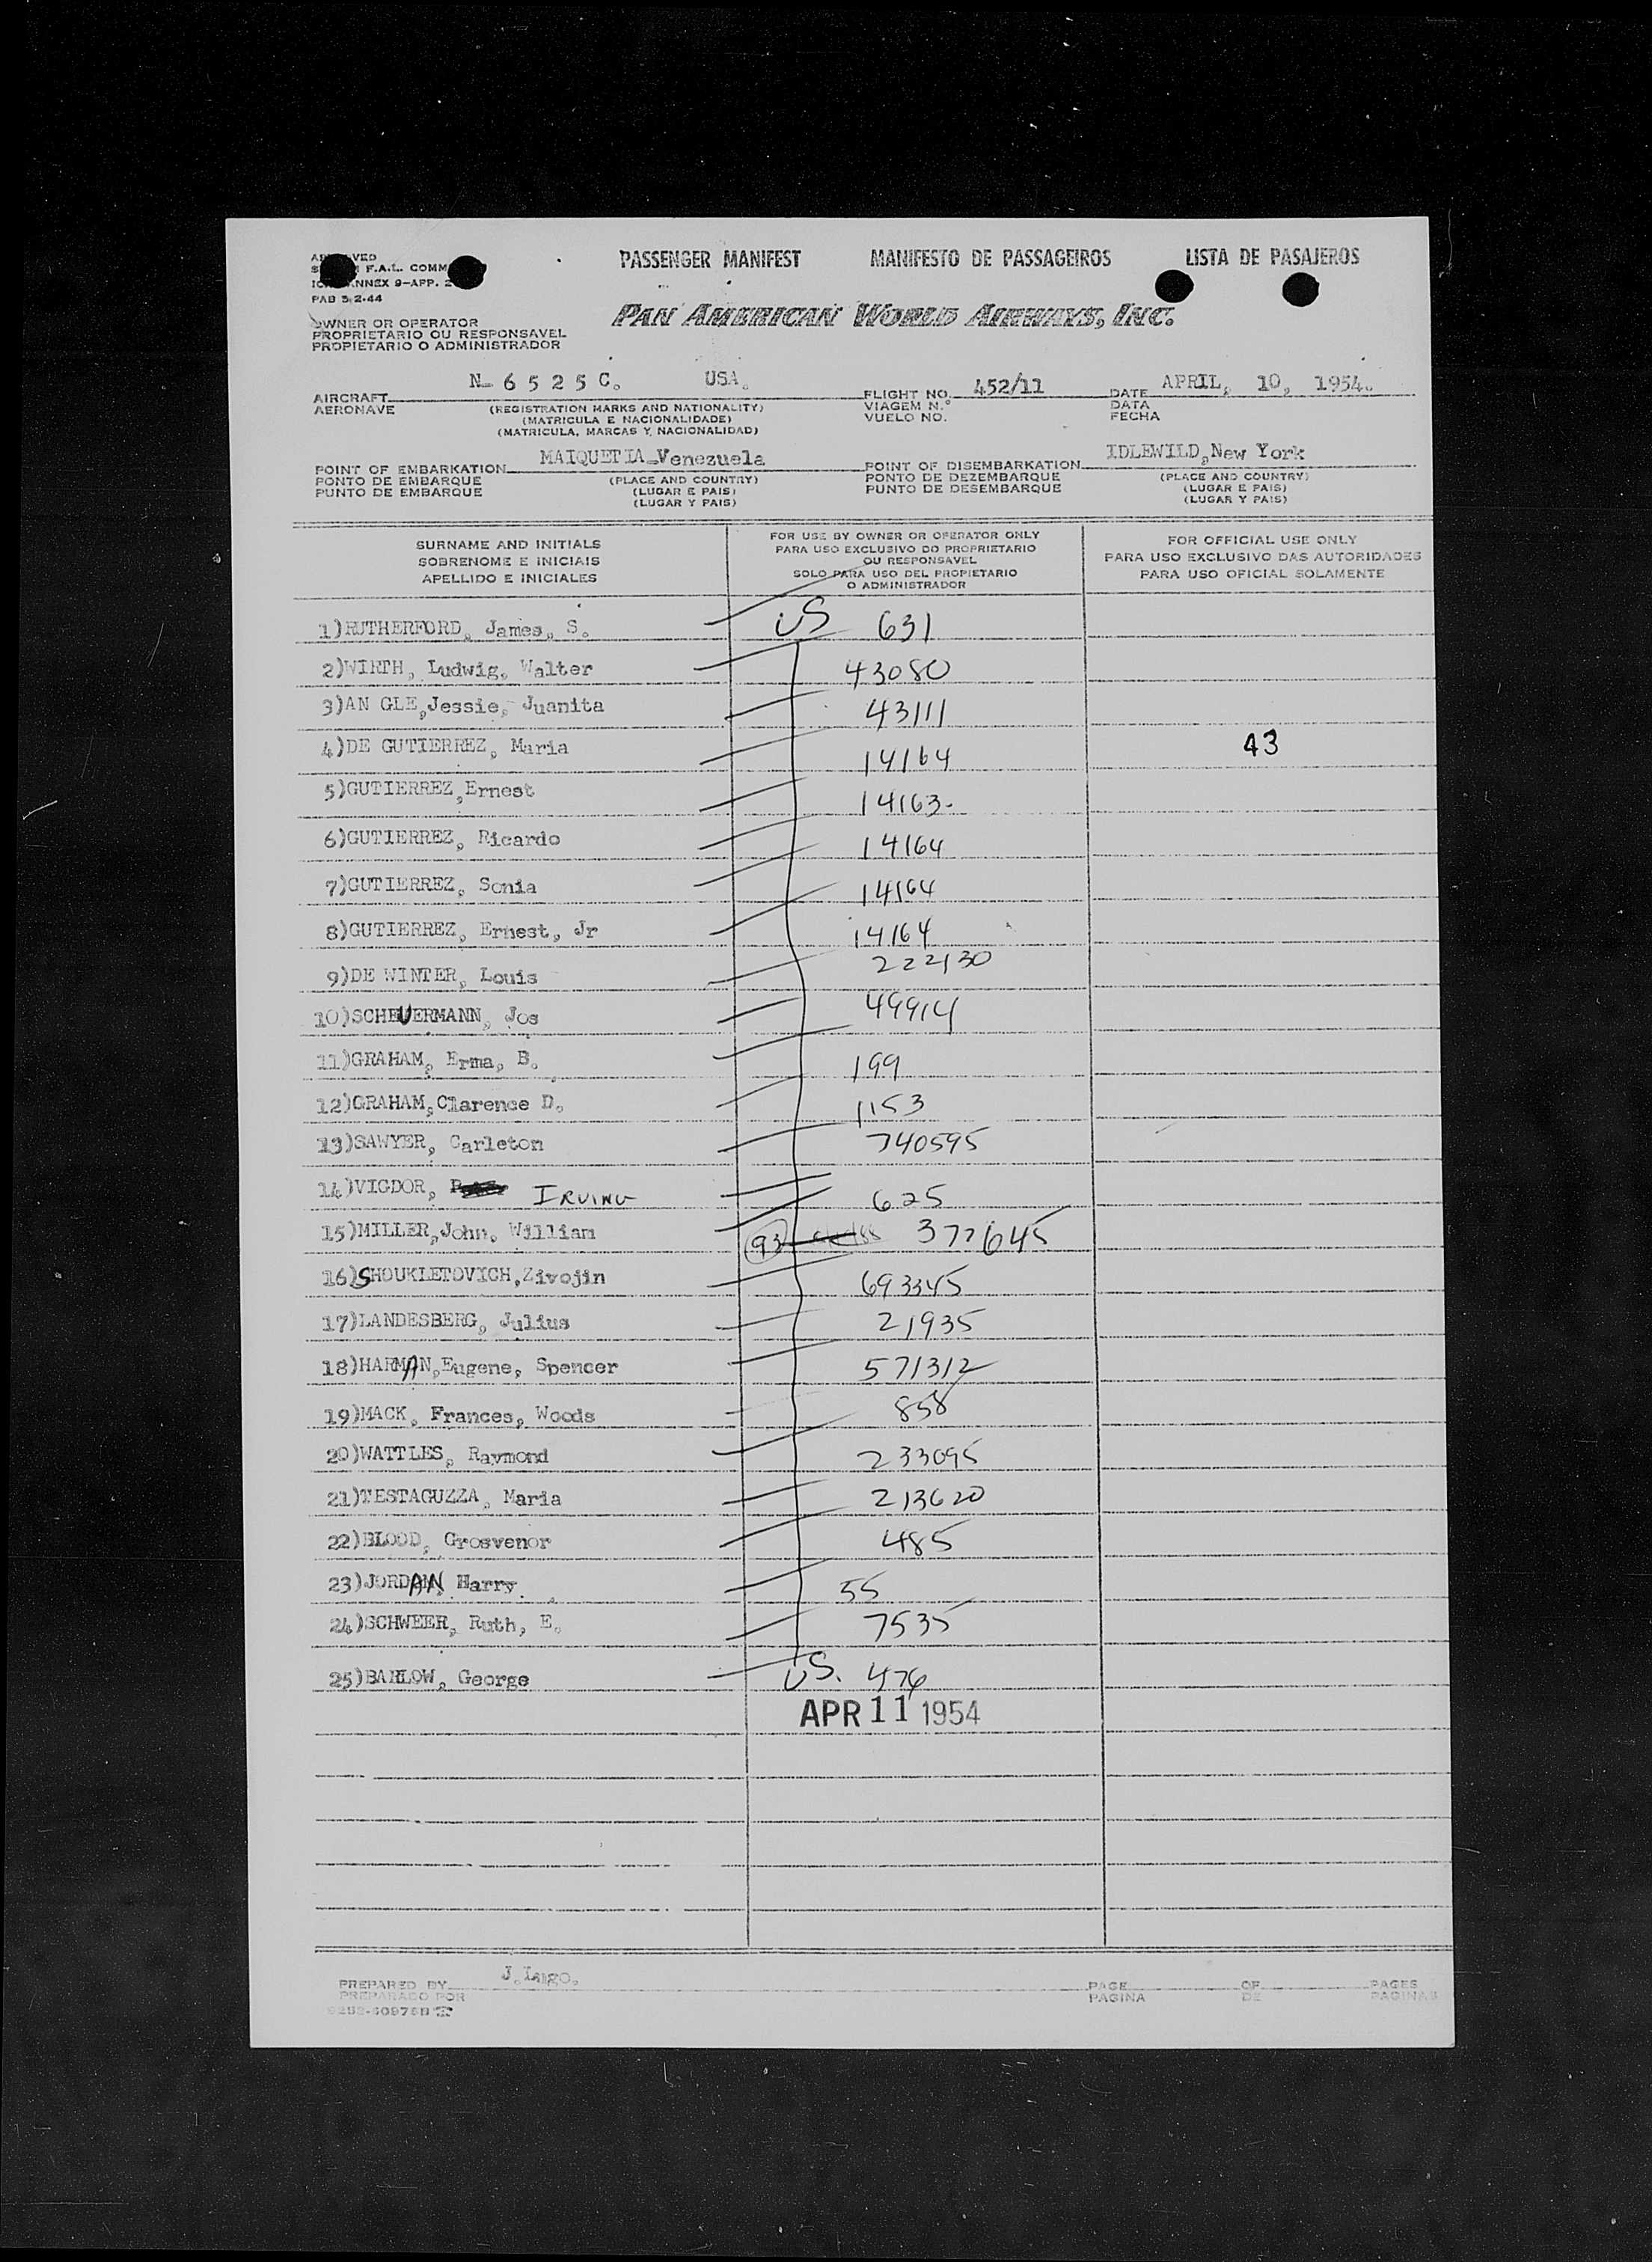 PASSENGER MANIFEST MANIFESTO DE PASSAGEIROS LISTA DE PASAJEROS
F.A.L. COMM
ANNEX 9-APP. 2
PAB 3-2-44
PAN AMERICAN WORLD AIRWAYS, INC.
OWNER OR OPERATOR
PROPRIETARIO OU RESPONSAVEL
PROPIETARIO O ADMINISTRADOR
AIRCRAFT N- 6 5 2 5 C. USA. FLIGHT NO. 452/11 DATE APRIL, 10, 1954.
AERONAVE (REGISTRATION MARKS AND NATIONALITY) VIAGEM N.º DATA
(MATRICULA E NACIONALIDADE) VUELO NO. FECHA
(MATRICULA, MARCAS Y NACIONALIDAD)
POINT OF EMBARKATION MAIQUETIA-Venezuela POINT OF DISEMBARKATION IDLEWILD, New York
PONTO DE EMBARQUE (PLACE AND COUNTRY) PONTO DE DEZEMBARQUE (PLACE AND COUNTRY)
PUNTO DE EMBARQUE (LUGAR E PAIS) PUNTO DE DESEMBARQUE (LUGAR E PAIS)
(LUGAR Y PAIS) (LUGAR Y PAIS)
SURNAME AND INITIALS
SOBRENOME E INICIAIS
APELLIDO E INICIALES
FOR USE BY OWNER OR OPERATOR ONLY
PARA USO EXCLUSIVO DO PROPRIETARIO
OU RESPONSAVEL
SOLO PARA USO DEL PROPIETARIO
O ADMINISTRADOR
FOR OFFICIAL USE ONLY
PARA USO EXCLUSIVO DAS AUTORIDADES
PARA USO OFICIAL SOLAMENTE
1)RUTHERFORD, James, S. US 631
2)WIRTH, Ludwig, Walter 43080
3)AN GLE,Jessie, Juanita 43111
4)DE GUTIERREZ, Maria 14164 43
5)GUTIERREZ,Ernest 14163-
6)GUTIERREZ, Ricardo 14164
7)GUTIERREZ, Sonia 14164
8)GUTIERREZ, Ernest, Jr 14164
9)DE WINTER, Louis 222130
10)SCHEUERMANN, Jos 49914
11)GRAHAM, Erma, B. 199
12)GRAHAM,Clarence D. 1153
13)SAWYER, Carleton 740595
14)VIGDOR, IRVING 625
15)MILLER,John, William 93 377645
16)SHOUKLETOVICH,Zivojin 693345
17)LANDESBERG, Julius 21935
18)HARMAN,Eugene, Spencer 571312
19)MACK, Frances, Woods 858
20)WATTLES, Raymond 233095
21)TESTAGUZZA, Maria 213620
22)BLOOD, Grosvenor 485
23)JORDAN, Harry 55
24)SCHWEER, Ruth, E. 7535
25)BARLOW, George US. 476
APR 11 1954
PREPARED BY J.Lugo. PAGE OF PAGES
PREPARADO POR PAGINA DE PAGINAS